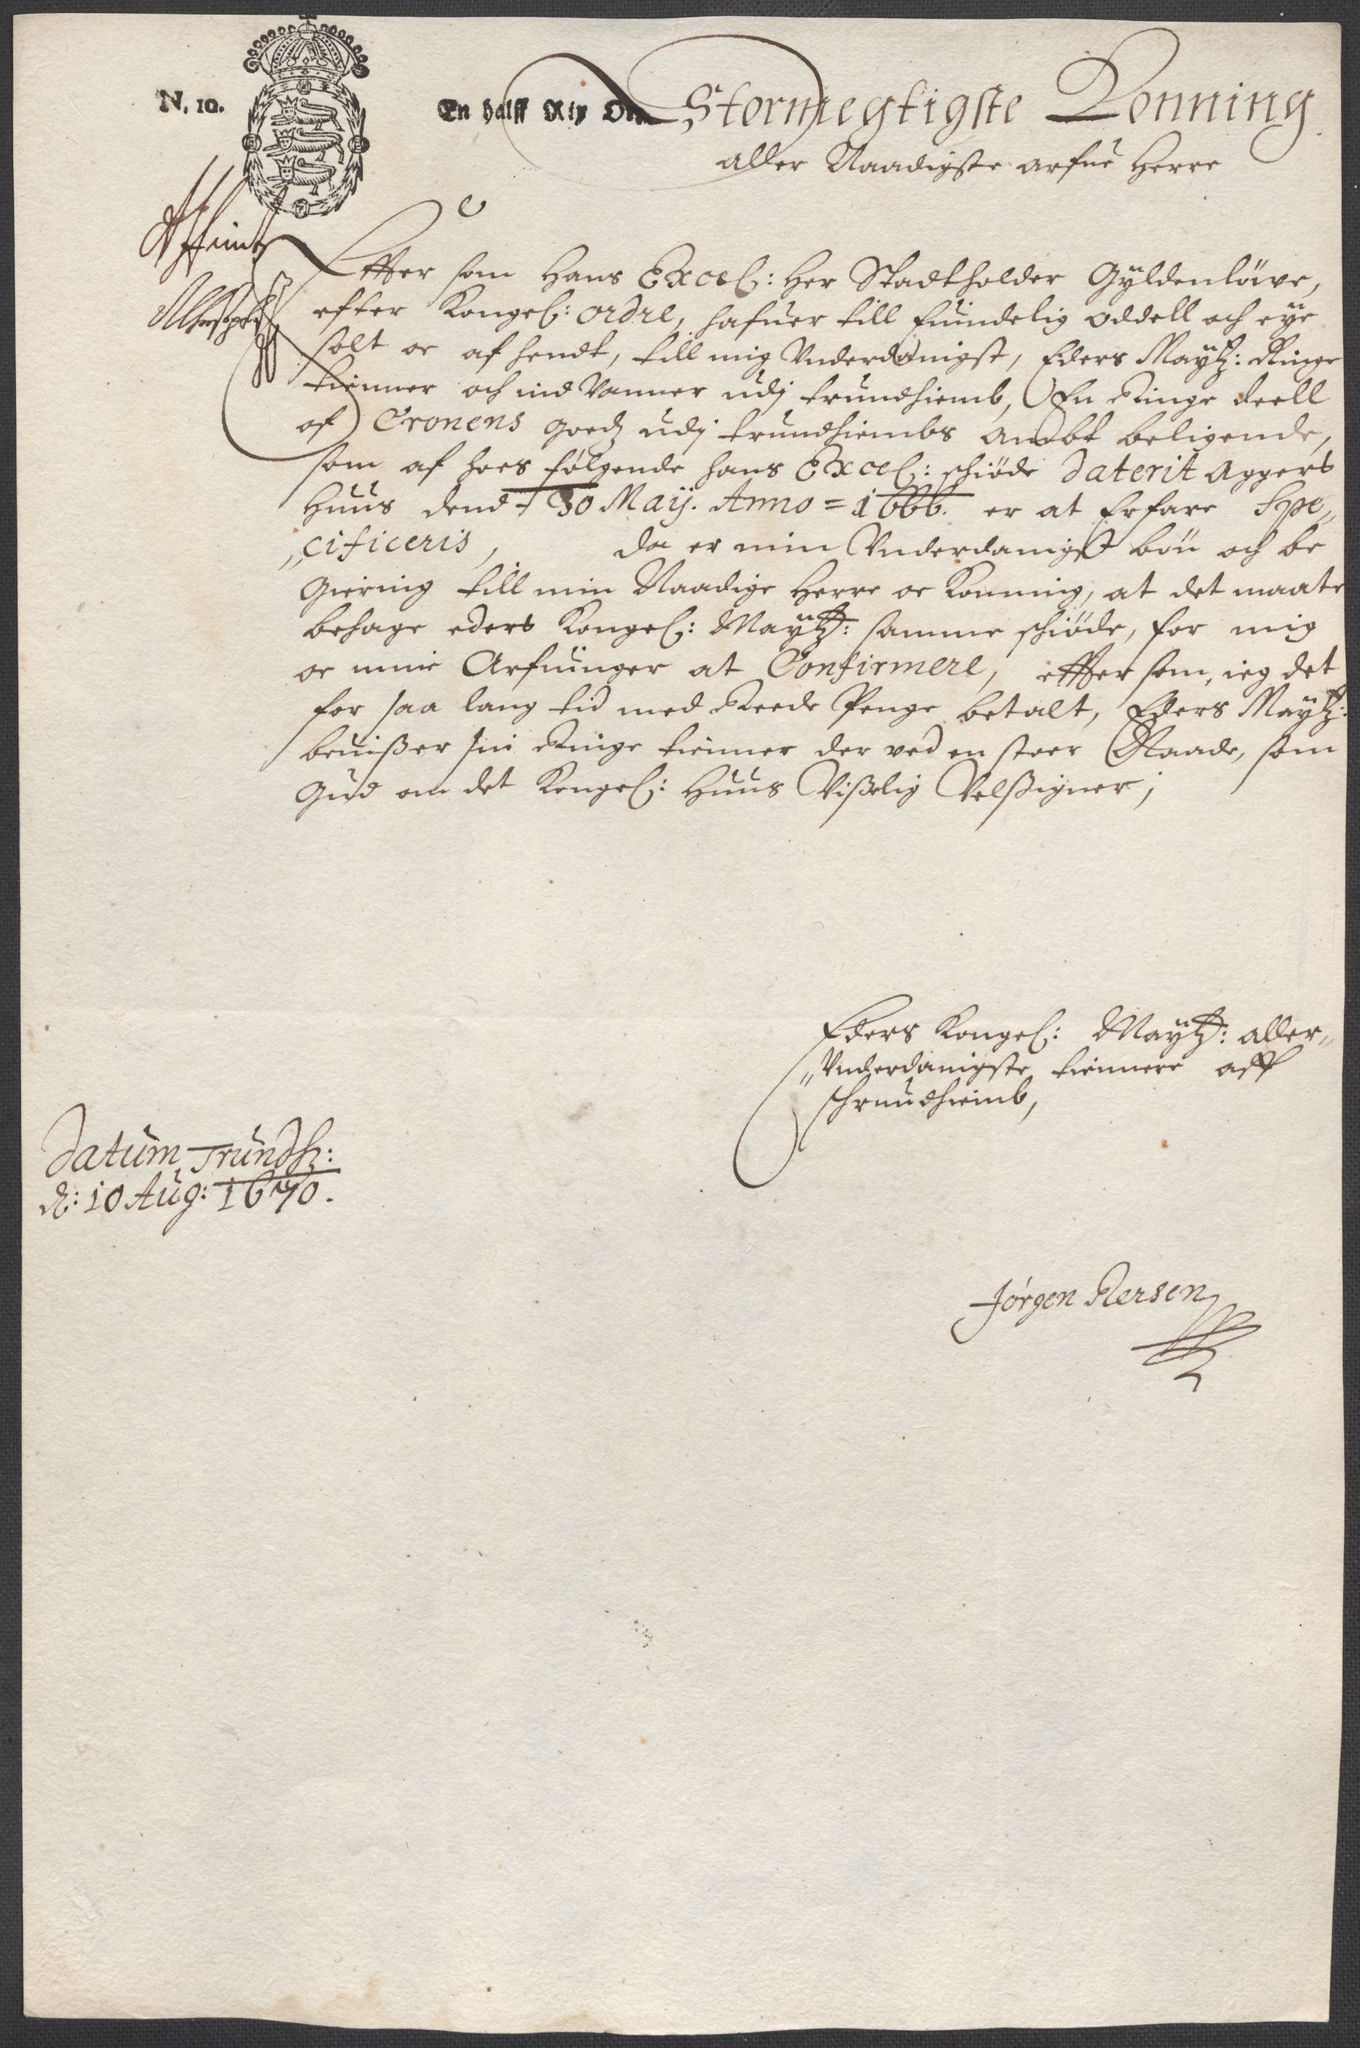 N. 10.
En halff Rix
Stormegtigste Konning
aller Naadigste arfue Herre
Effter som Hans Excel: Her Stadtholder Gyldenløwe,
efter Kongel: ordre, hafuer till Euindelig oddell och eye
solt oc af hendt, till mig Vnderdanigst, Eders Maytz: Ringe
tienner och ind Vonner udj trundhiemb, En Ringe deell
af Cronens goedz udj trundhiembs Ambt beligende,
som af hoes følgende hans Excel: schiøde daterit Aggers
Huus dend 30 Maÿ. Anno = 1666. er at Erfare Spe„
„cificeris, da er min Vnderdanigst bøn och be
giering till min Naadige Herre oc Konning, at det maate
behage eders Kongel: Maÿtz: samme schiøde, for mig
oc mine Arfuinger at Confirmere, effter som, ieg det
for saa lang tid med Reede Penge betalt, Eders Maytz:
beuißer sin Ringe tienner der ved en stoer Naade, som
Gud om det Kongel: Huus Vißelig Velßigner,
Eders Kongel: Maÿtz: aller„
„Vnderdanigste tiennere aff
Datum Trundh:
d: 10 Aug: 1670.
Jørgen